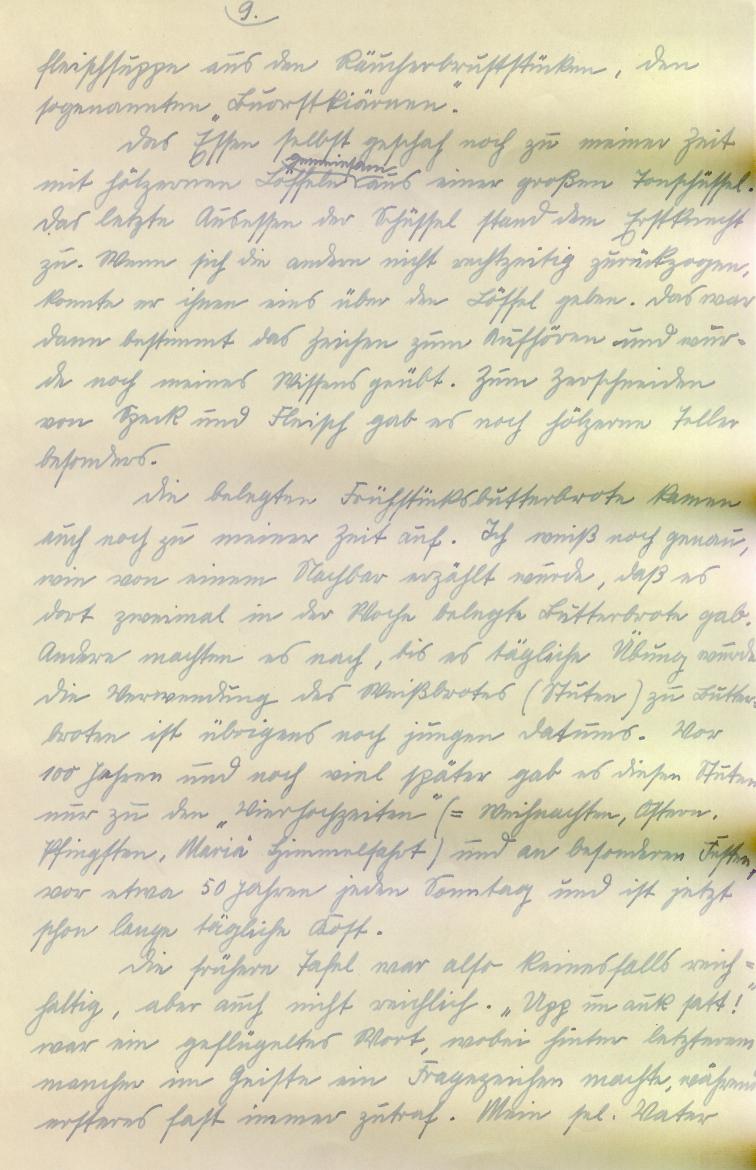 9.
fleischsuppe aus den Räucherbruststücken, den
sogenannten „Buorstkiärnen“.
Das Essen selbst geschah noch zu meiner Zeit
gemeinsam
mit hölzernen Löffeln aus einer großen Tonschüssel.
Das letzte Ausessen der Schüssel stand dem Erstknecht
zu. Wenn sich die andern nicht rechtzeitig zurückzogen,
konnte er ihnen eins über den Löffel geben. Das war
dann bestimmt das Zeichen zum Aufhören und wur=
de noch meines Wissens geübt. Zum Zerschneiden
von Speck und Fleisch gab es noch hölzerne Teller
besonders.
Die belegten Frühstücksbutterbrote kamen
auch noch zu meiner Zeit auf. Ich weiß noch genau,
wie von einem Nachbar erzählt wurde, daß es
dort zweimal in der Woche belegte Butterbrote gab.
Andere machten es nach, bis es tägliche Übung wurde
Die Verwendung des Weißbrotes (Stuten) zu Butter=
broten ist übrigens noch jungen Datums. Vor
100 Jahren und noch viel später gab es diesen Stuten
nur zu den „Vierhochzeiten“ (= Weihnachten, Ostern.
Pfingsten, Mariä Himmelfahrt) und an besonderen Festen,
vor etwa 50 Jahren jeden Sonntag und ist jetzt
schon lange tägliche Kost.
Die frühere Tafel war also keinesfalls reich=
haltig, aber auch nicht reichlich. „Upp un auk satt!“
war ein geflügeltes Wort, wobei hinter letzterem
mancher im Geiste ein Fragezeichen machte, während
ersteres fast immer zutraf. Mein sel. Vater